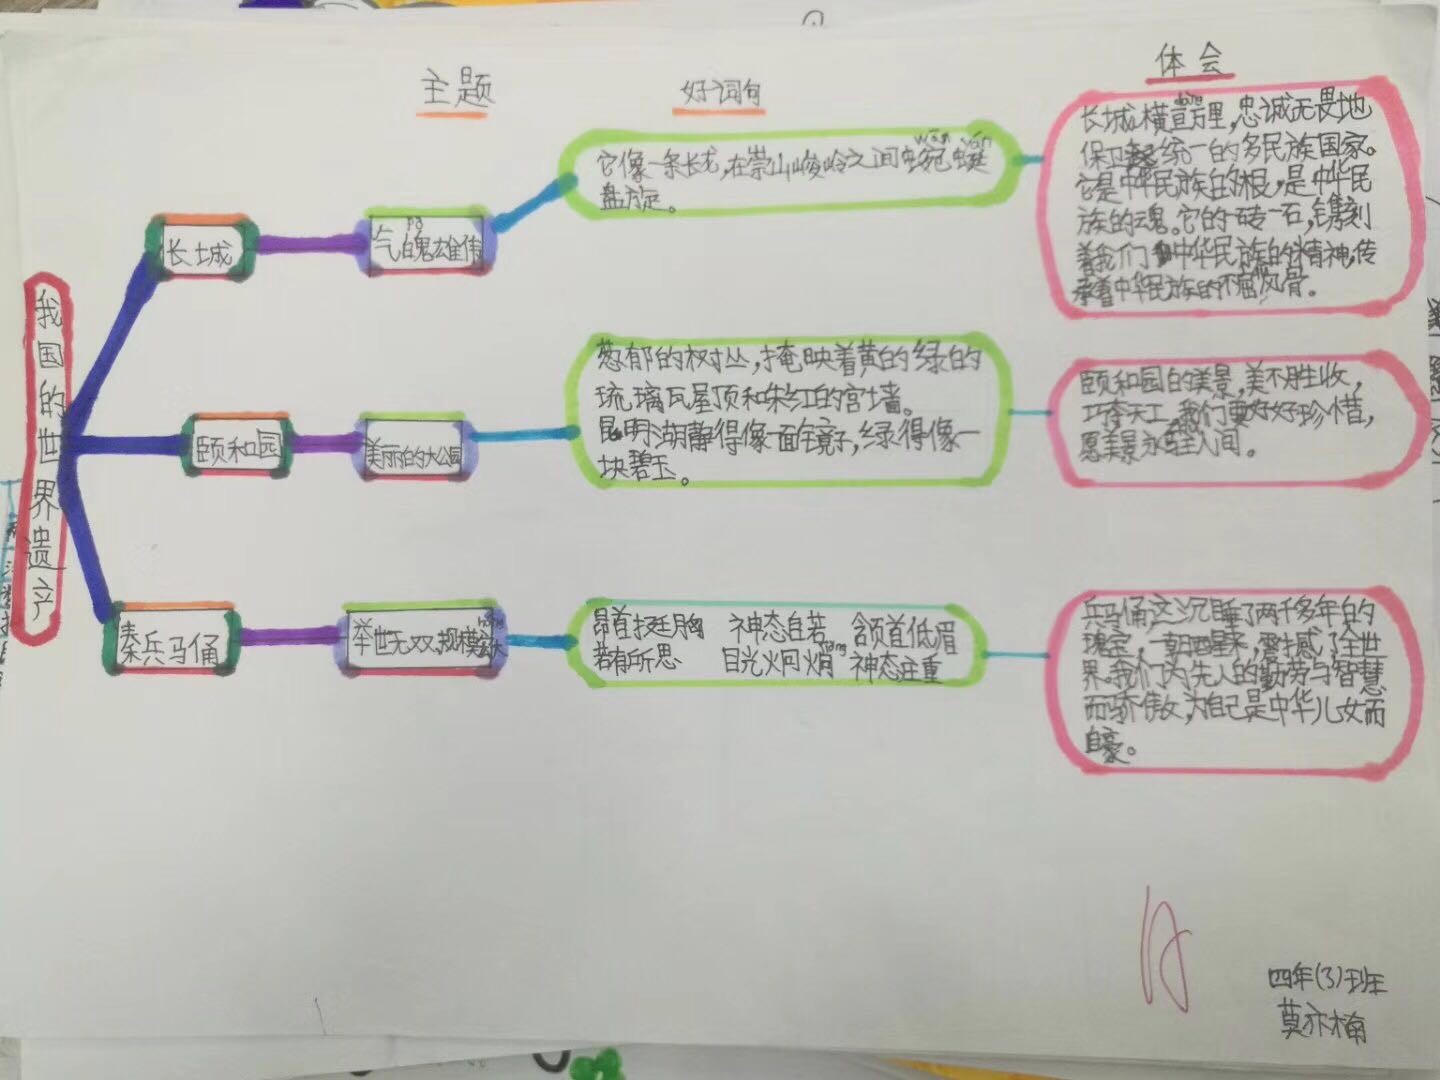 主题
好词句
体会
我国的世界遗产
长城
pò
气魄雄伟
wān yán
它像一条长龙,在崇山峻岭之间蜿蜒
盘旋。
长城横亘万里,忠诚无畏地
保卫统一的多民族国家。
它是中华民族的根,是中华民
族的魂。它的一砖一石,镌刻
着我们中华民族的精神,传
承着中华民族的不屈风骨。
颐和园
美丽的大公园
葱郁的树丛,掩映着黄的绿的
琉璃瓦屋顶和朱红的宫墙。
昆明湖静得像一面镜子,绿得像一
块碧玉。
颐和园的美景,美不胜收,
巧夺天工,我们要好好珍惜,
愿美景永驻人间。
秦兵马俑
hóng
举世无双,规模宏大
昂首挺胸 神态自若 颔首低眉
若有所思 目光炯炯 神态庄重
兵马俑这沉睡了两千多年的
瑰宝,一朝醒来,震撼了全世
界。我们为先人的勤劳与智慧
而骄傲,为自己是中华儿女而
自豪。
四年(3)班
莫亦楠